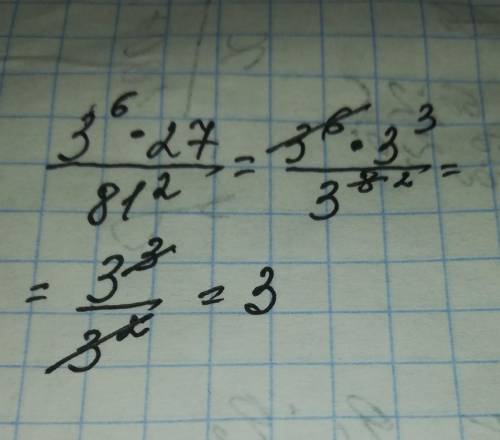 3⁶ · 27 / 81² = 3⁶ · 3³ / 3⁸ ² =
= 3³ / 3² = 3